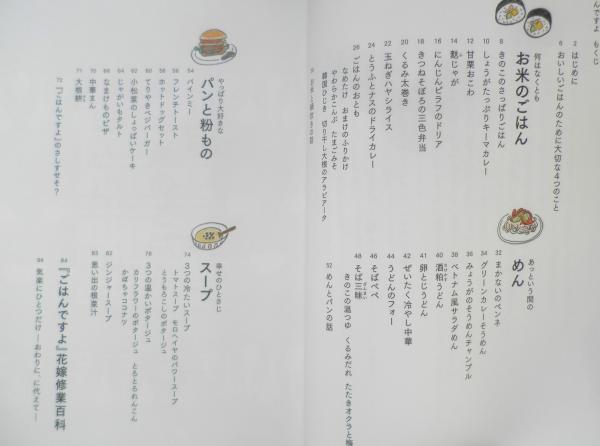 んですよ　もくじ
2　はじめに
6　おいしいごはんのために大切な4つのこと
何はなくとも
お米のごはん
8　きのこのさっぱりごはん
10　しょうがたっぷりキーマカレー
12　甘栗おこわ
14　麩じゃが
16　にんじんピラフのドリア
18　きつねそぼろの三色弁当
20　くるみ太巻き
22　玉ねぎハヤシライス
24　とうふとナスのドライカレー
26　ごはんのおとも
なめたけ　おまけのふりかけ
やわらかこんぶ　たまごみそ
韓国ひじき　切り干し大根のアラビアータ
あっという間の
めん
32　まかないのペンネ
34　グリーンカレーそうめん
36　みょうがのそうめんチャンプル
38　ベトナム風サラダめん
40　酒粕うどん
41　卵とじうどん
42　ぜいたく冷やし中華
44　うどんのフォー
46　そばペペ
48　そば三昧
きのこの温つゆ　くるみだれ　たたきオクラと梅
52　めんとパンの話
やっぱり大好きな
パンと粉もの
54　バインミー
56　フレンチトースト
58　ホットドッグセット
60　てりやきベジバーガー
62　小松菜のしょっぱいケーキ
64　じゃがいもタルト
68　なまけものピザ
70　中華まん
71　大根餅
72　『ごはんですよ』のさしすせそ？
幸せのひとさじ
スープ
74　3つの冷たいスープ
トマトスープ　モロヘイヤのパワースープ
とうもろこしのポタージュ
78　3つの温かいポタージュ
カリフラワーのポタージュ　とろとろれんこん
かぼちゃココナツ
82　ジンジャースープ
83　思い出の根菜汁
84　『ごはんですよ』花嫁修業百科
94　気楽にひとつだけ―おわりに、に代えて―